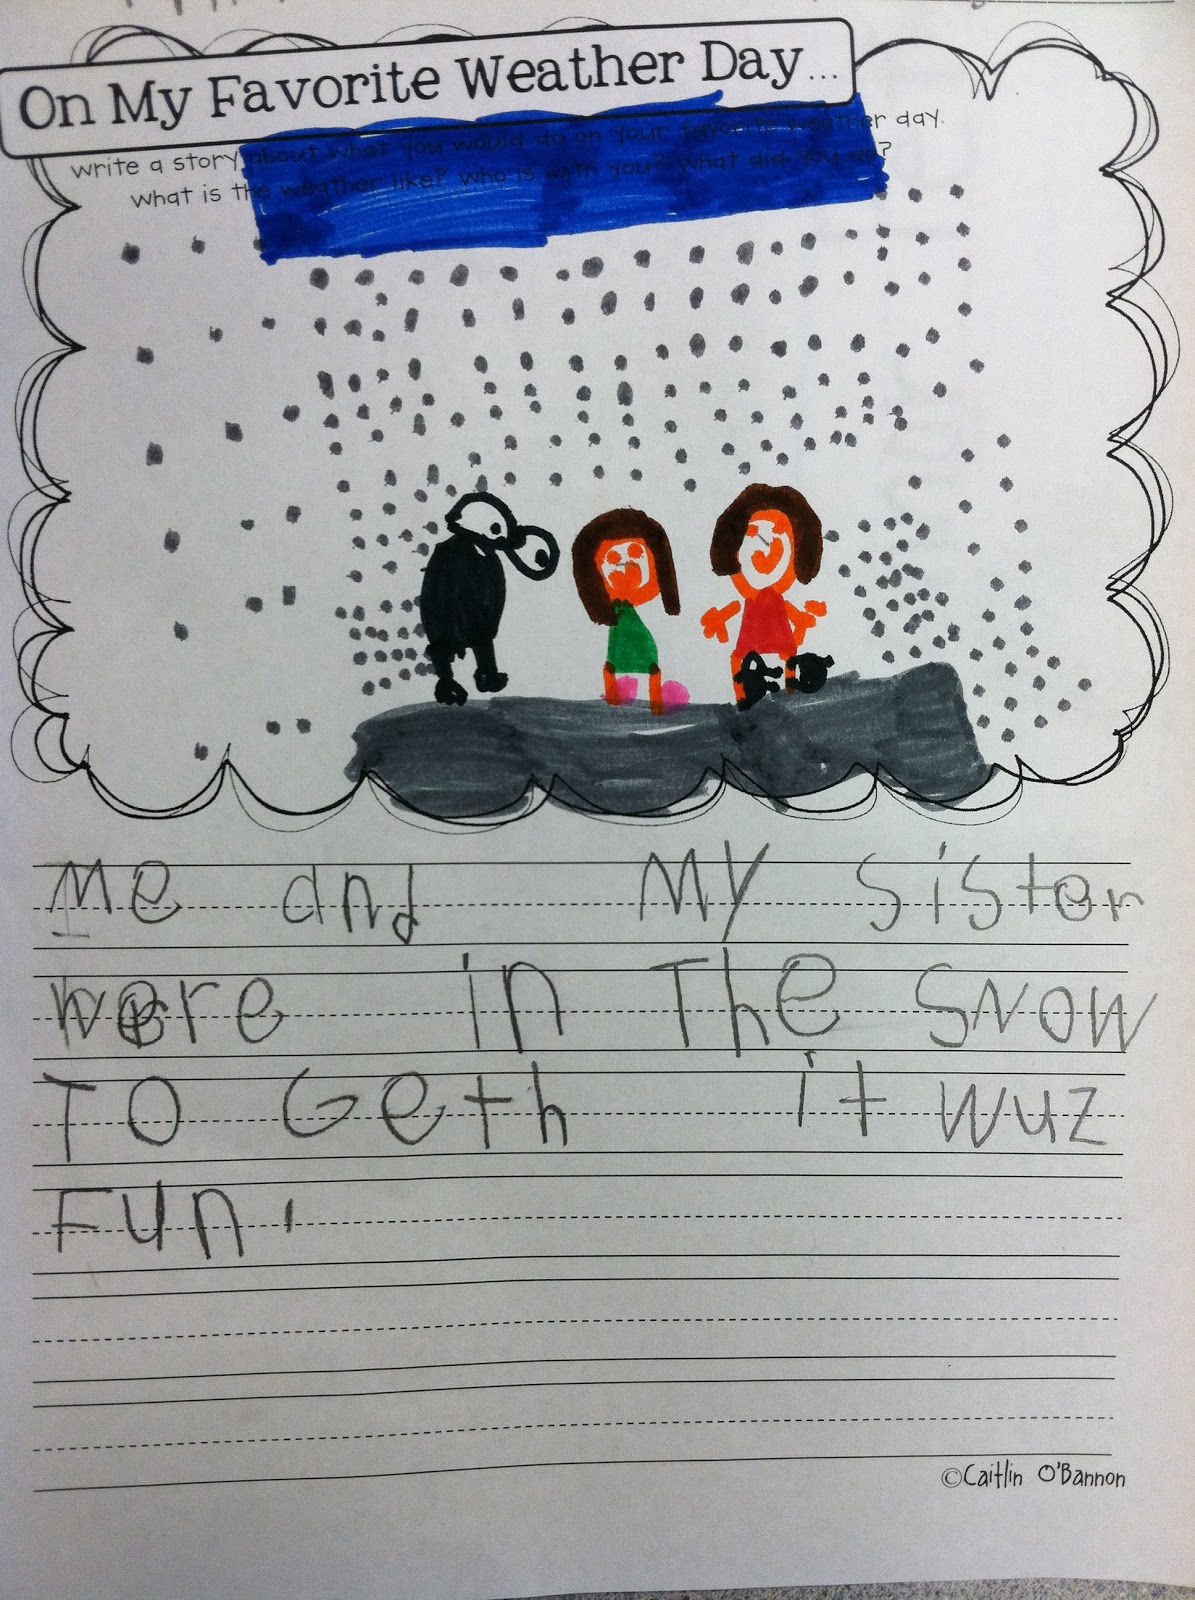 On My Favorite Weather Day...
write a story about what you would do on your favorite weather day.
what is the weather like? Who is with you? What did you do?
Me and My sister
were in The Snow
TO Geth it wuz
Fun.
©Caitlin O'Bannon